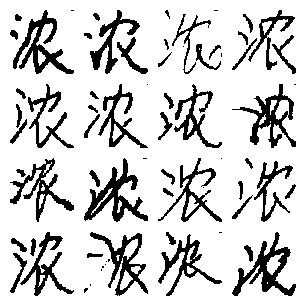 浓浓浓浓
浓浓浓浓
浓浓浓浓
浓浓浓浓